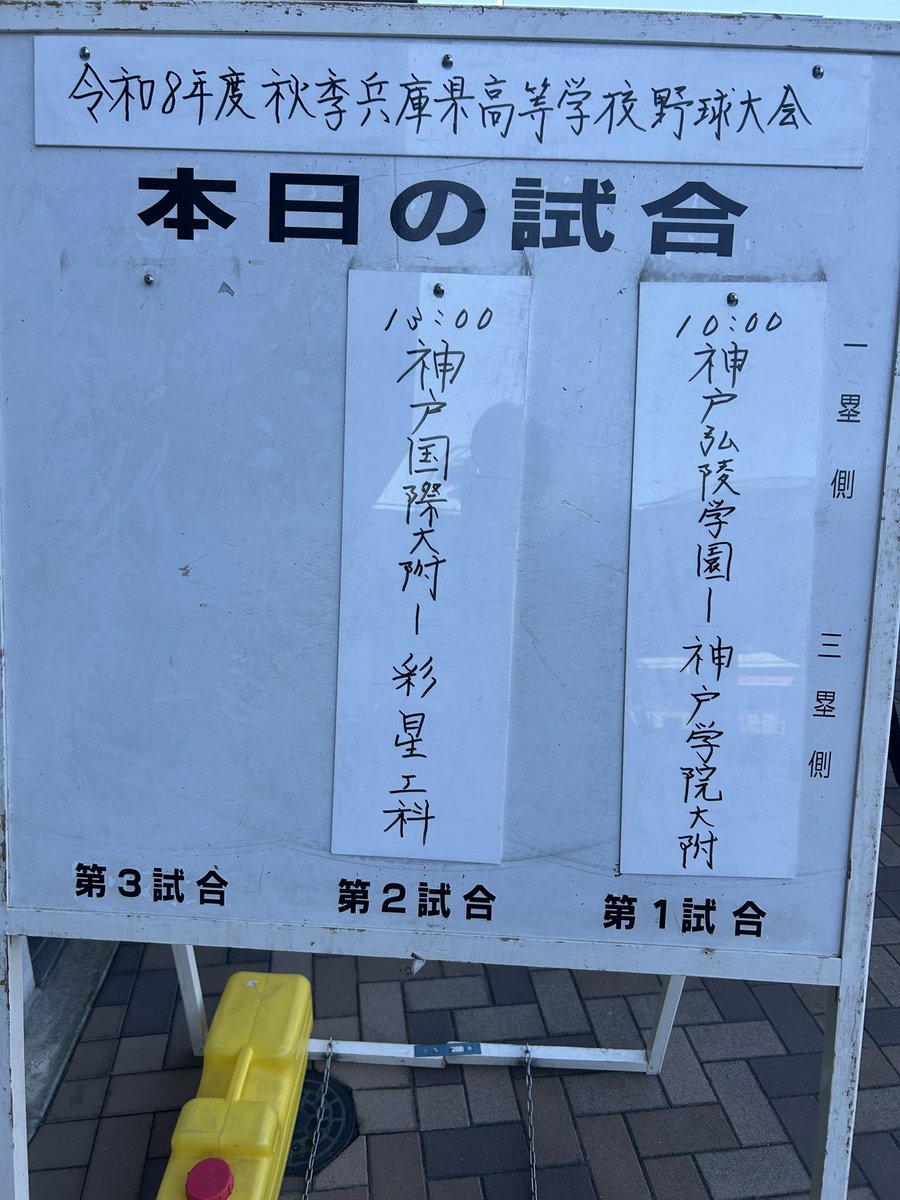 令和8年度 秋季兵庫県高等学校野球大会
本日の試合
一塁側
三塁側
10:00
神戸弘陵学園ー神戸学院大附
第1試合
13:00
神戸国際大附ー彩星工科
第2試合
第3試合